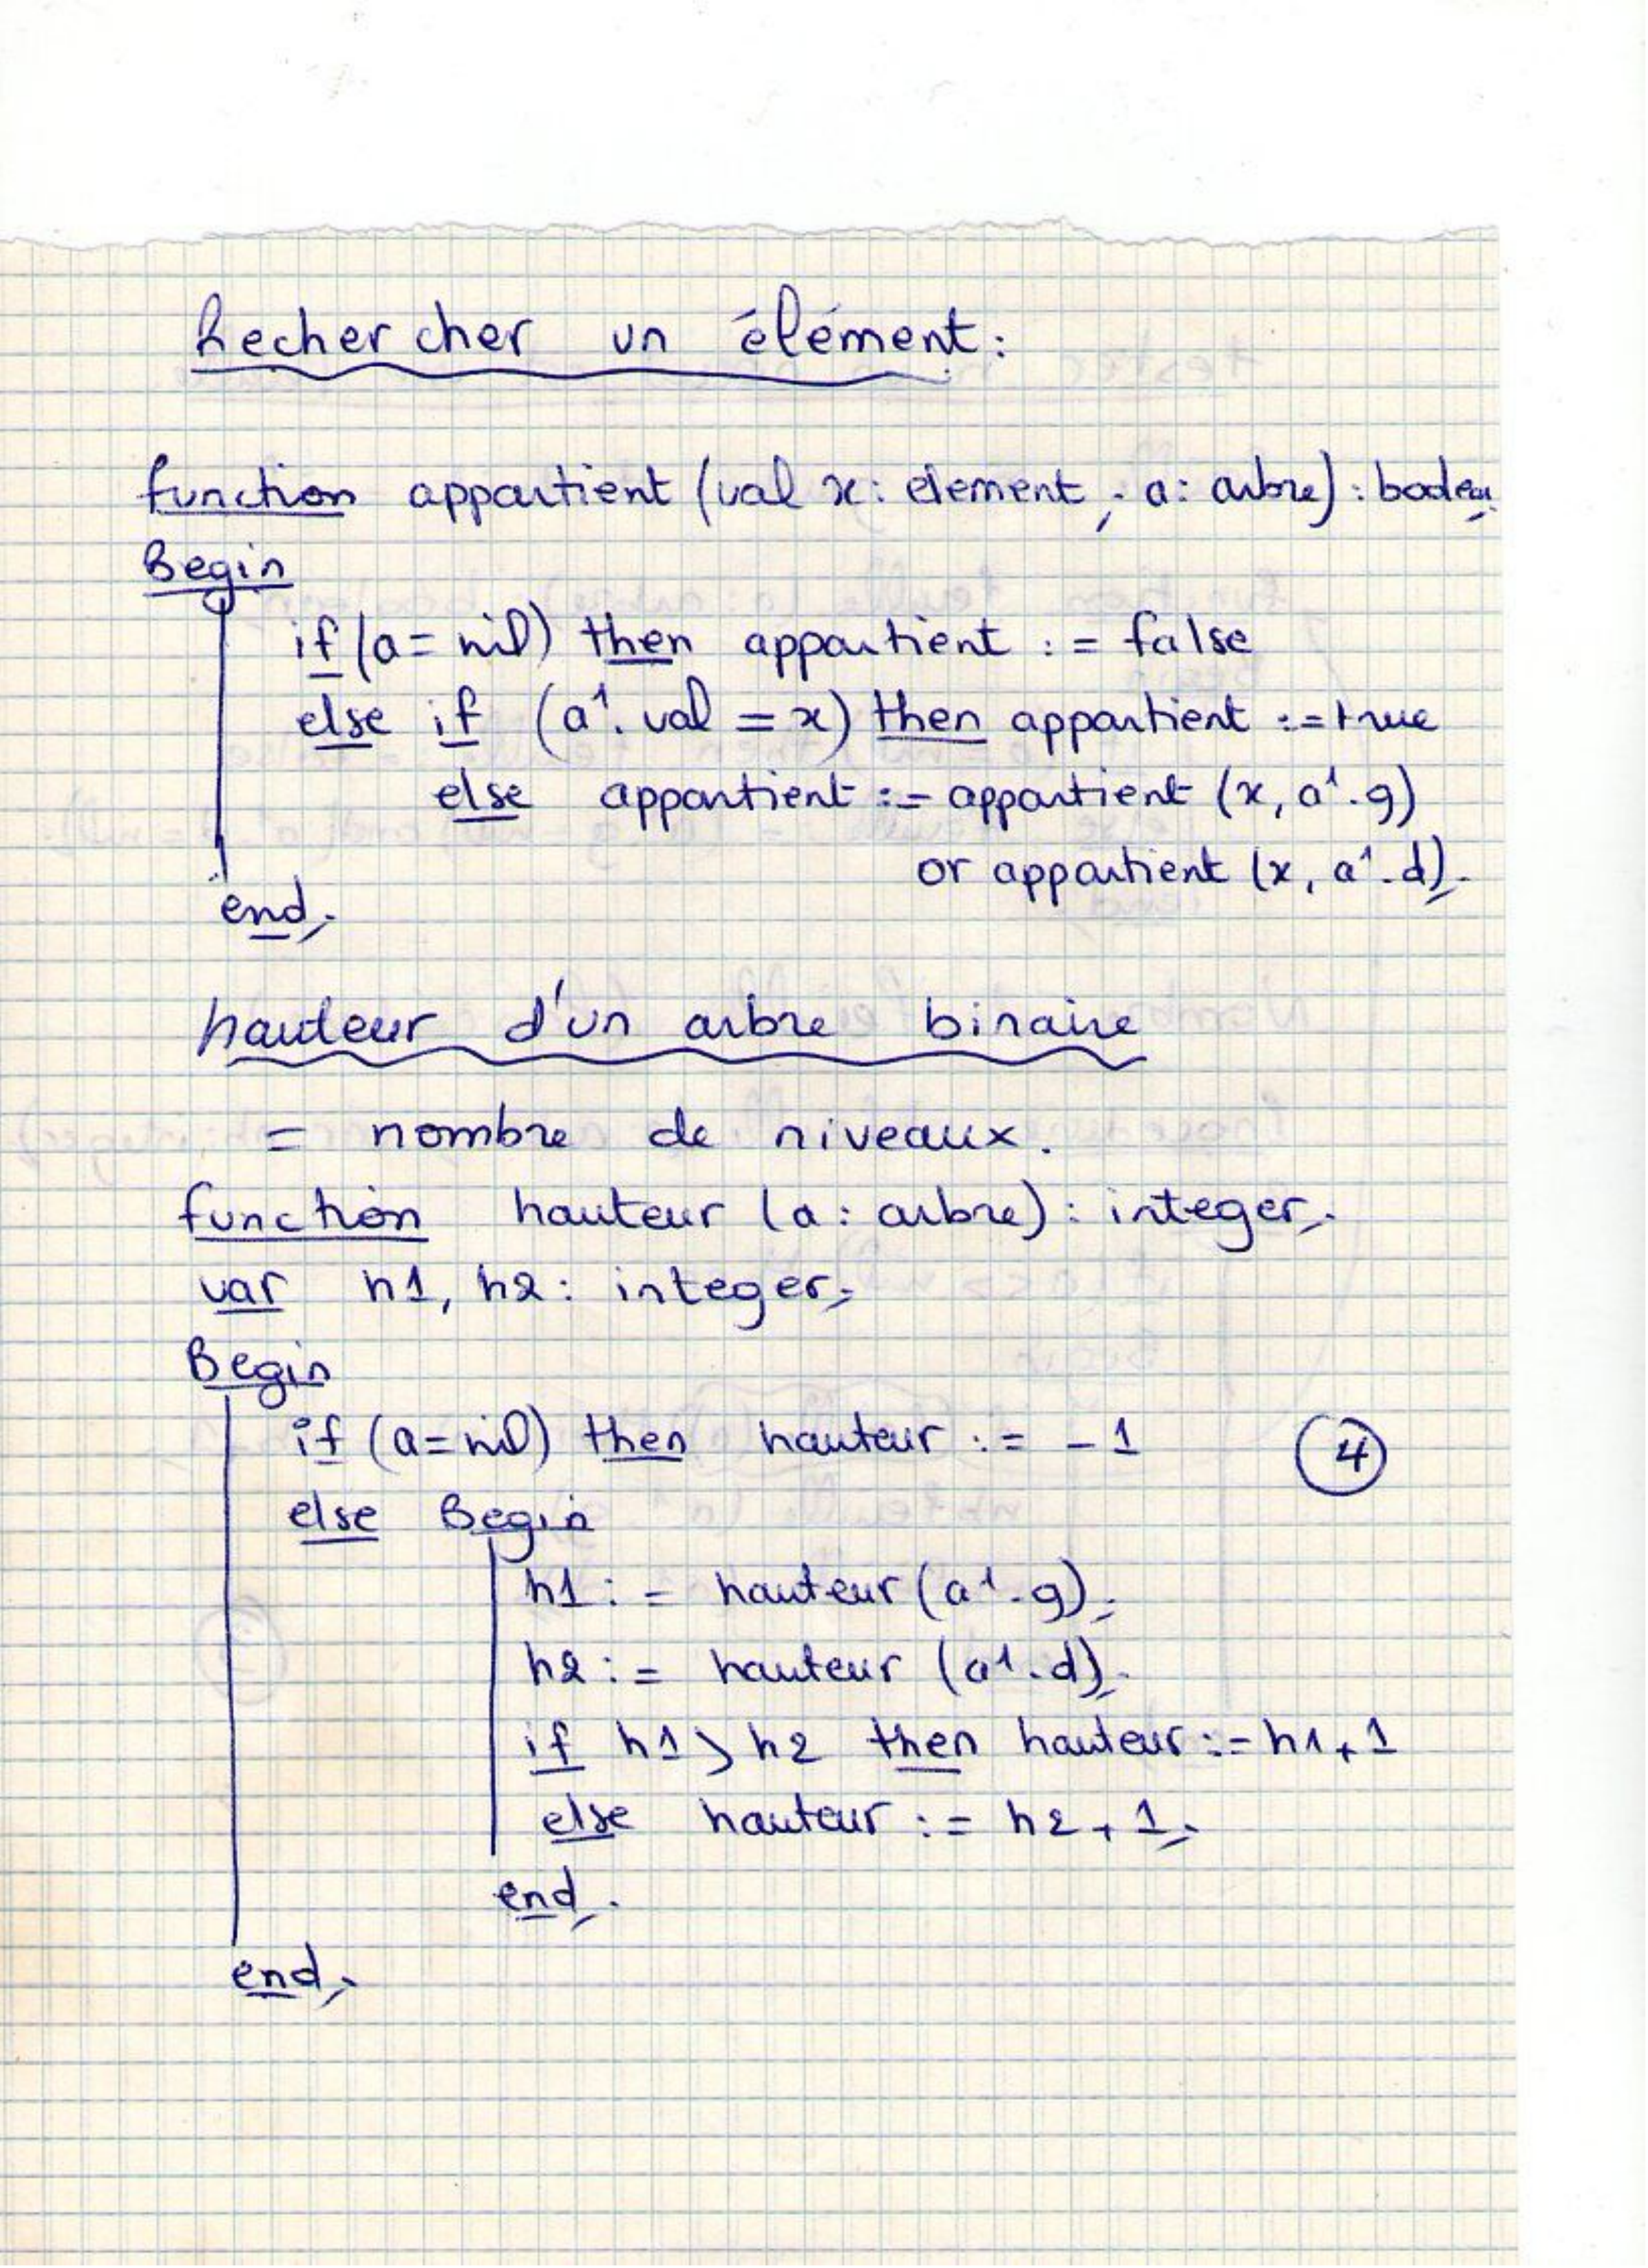 Rechercher un élément:
function appartient (val x: element ; a: arbre) : boolean;
Begin
if (a = nil) then appartient := false
else if (a↑. val = x) then appartient := true
else appartient := appartient (x, a↑.g)
or appartient (x, a↑.d);
end;
hauteur d'un arbre binaire
= nombre de niveaux.
function hauteur (a: arbre) : integer;
var h1, h2: integer;
Begin
if (a=nil) then hauteur := -1
4
else Begin
h1 := hauteur (a↑.g);
h2 := hauteur (a↑.d);
if h1 > h2 then hauteur := h1+1
else hauteur := h2+1;
end;
end;